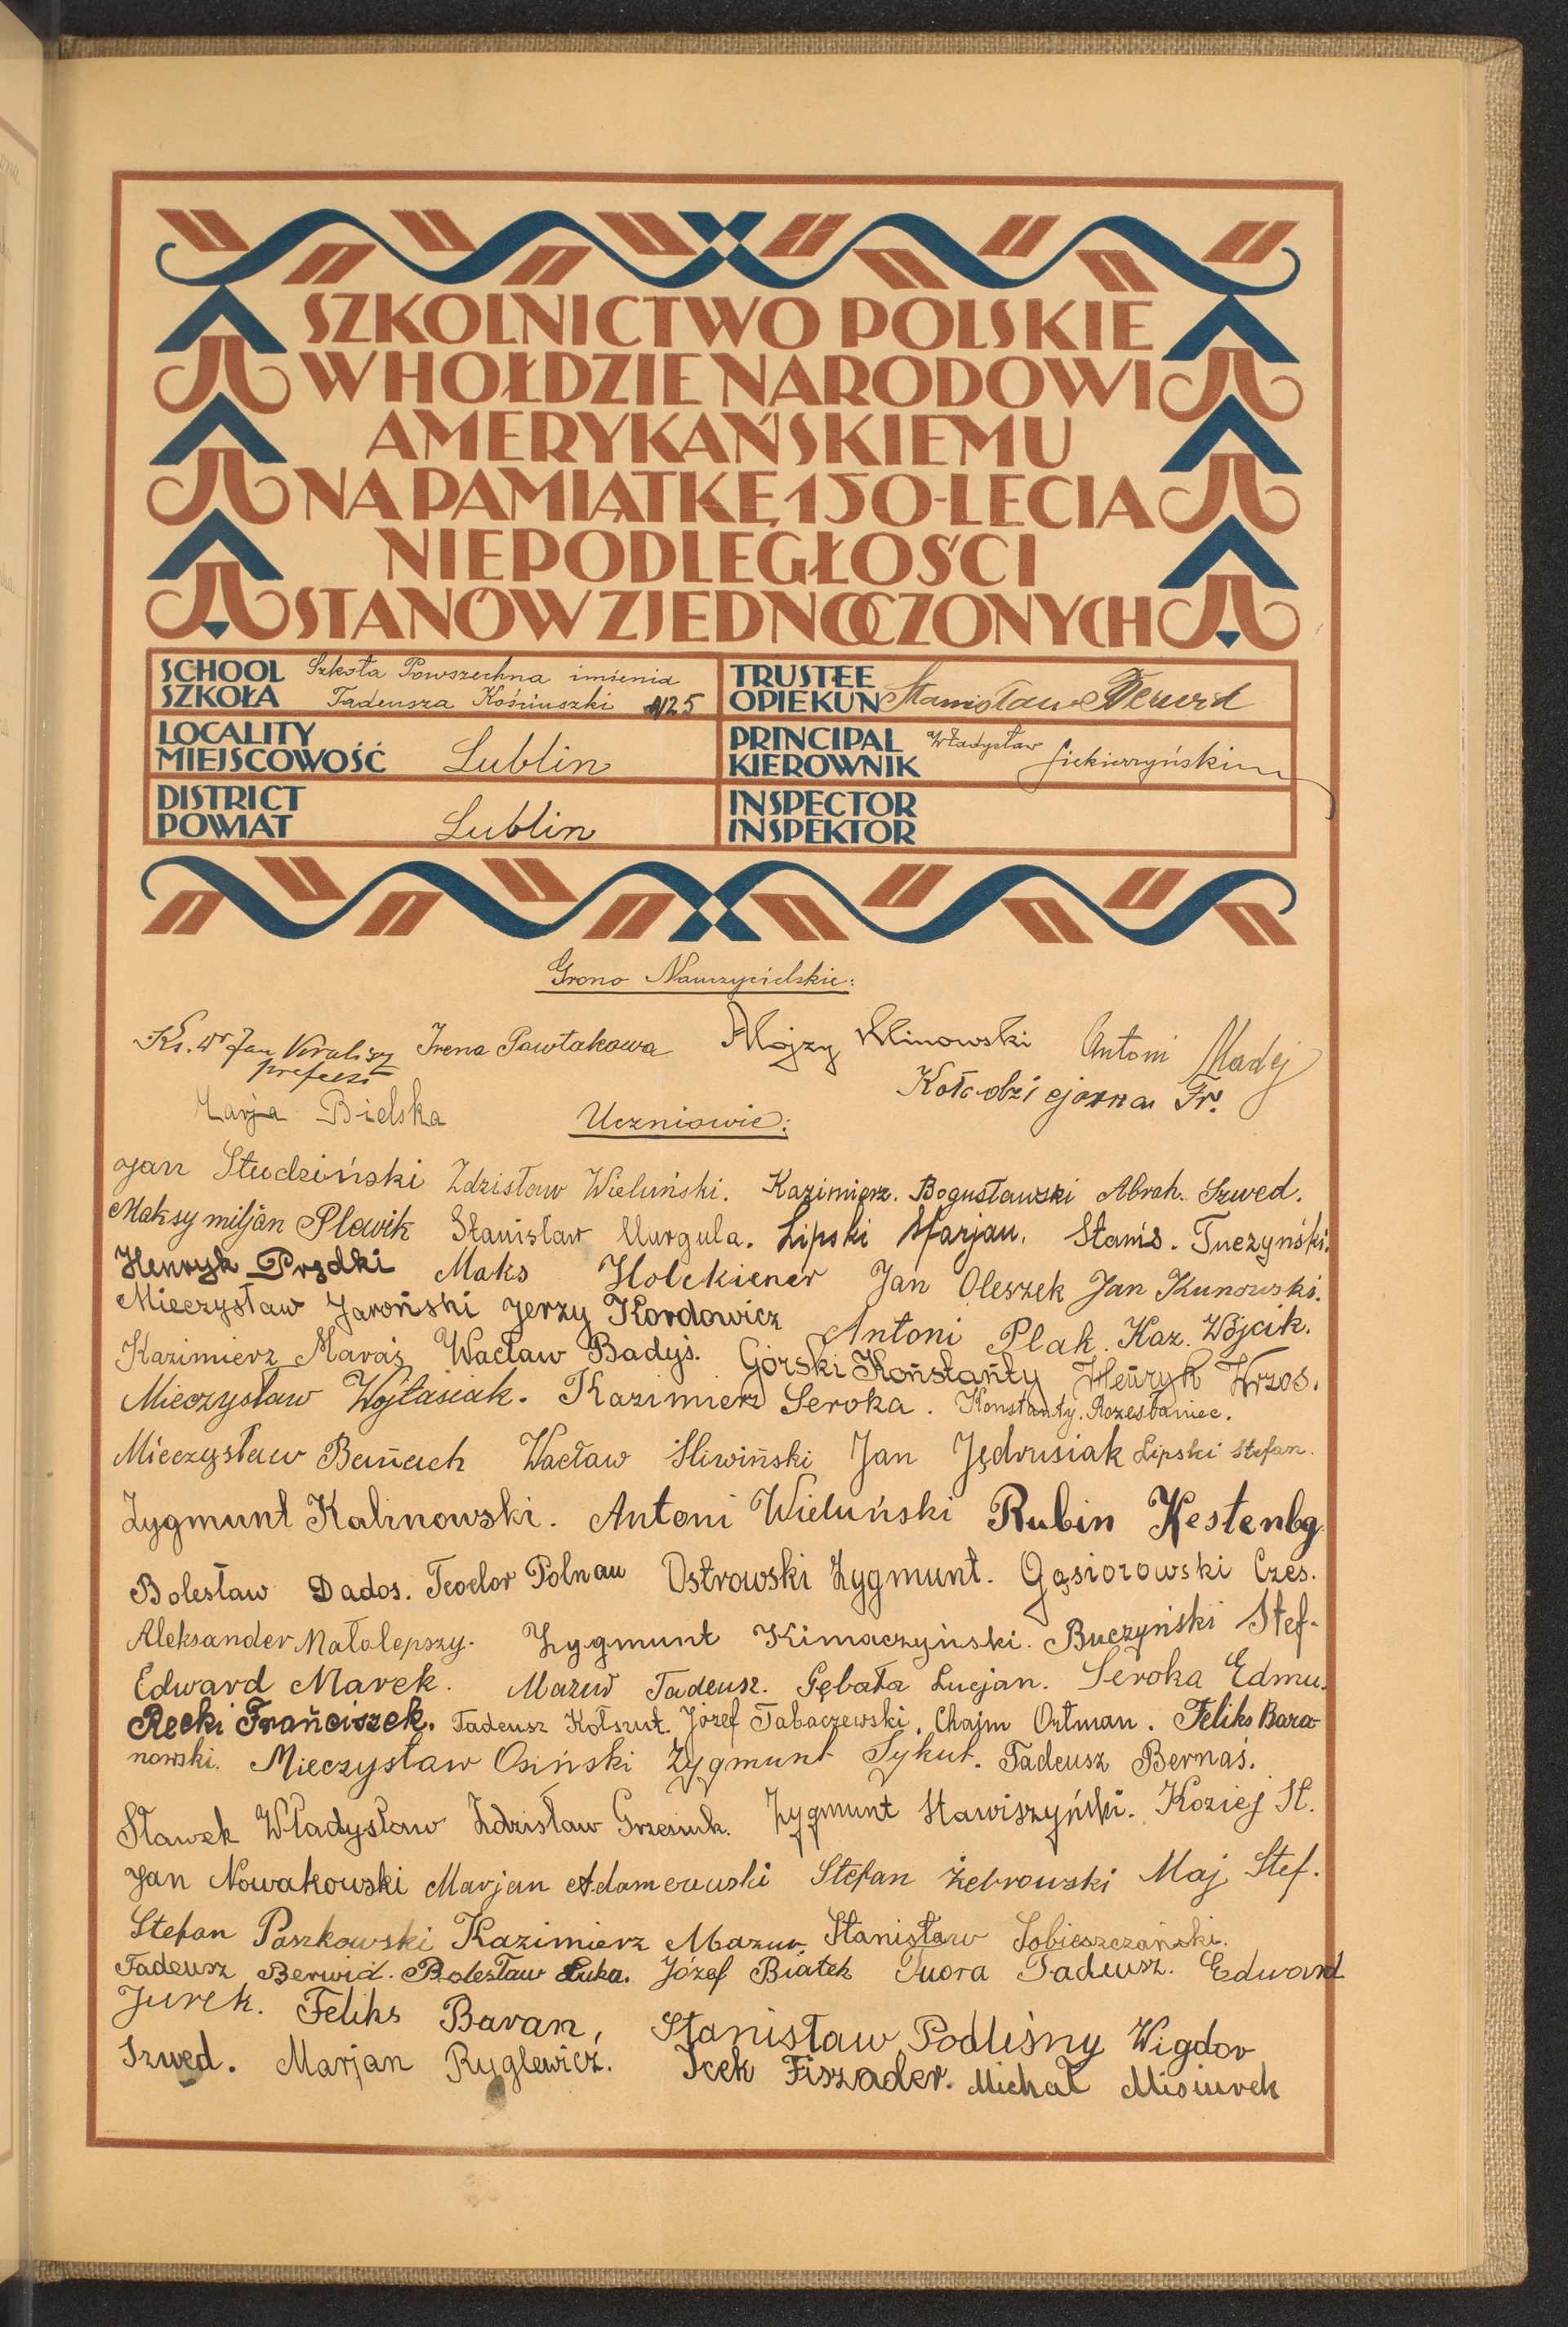 SZKOLNICTWO POLSKIE
W HOŁDZIE NARODOWI
AMERYKAŃSKIEMU
NA PAMIĄTKĘ 150-LECIA
NIEPODLEGŁOŚCI
STANÓW ZJEDNOCZONYCH
SCHOOL SZKOŁA Szkoła Powszechna imienia
Tadeusza Kościuszki №25
TRUSTEE OPIEKUN Stanisław
LOCALITY MIEJSCOWOŚĆ Lublin
PRINCIPAL KIEROWNIK Władysław Siekierzyński
DISTRICT POWIAT Lublin
INSPECTOR INSPEKTOR
Grono Nauczycielskie:
Ks. dr Jan Irena Pawlakowa Alojzy Klinowski Antoni Madej
prefekt Kołodziejowna Fr.
Marja Bielska
Uczniowie:
Jan Studziński Zdzisław Wieluński. Kazimierz. Bogusławski Abrah. Szwed.
Maksymiljan Plewik Stanisław Murgula. Lipski Marjan. Stanis. Tuczyński.
Henryk Prędki Maks Holckiener Jan Oleszek Jan Kunowski.
Mieczysław Jaroński Jerzy Kordowicz Antoni Plak. Kaz. Wójcik.
Kazimierz Maraś Wacław Badyś. Górski Konstanty Henryk Wrzos.
Mieczysław Wojtasiak. Kazimierz Seroka. Konstanty.
Mieczysław Banach Wacław Śliwiński Jan Jędrusiak Lipski Stefan.
Zygmunt Kalinowski. Antoni Wieluński Rubin Kestenbg.
Bolesław Dados. Teodor Polnau Ostrowski Zygmunt. Gąsiorowski Czes.
Aleksander Małolepszy. Zygmunt Kimaczyński. Buczyński Stef.
Edward Marek. Mazur Tadeusz. Gębała Lucjan. Seroka Edmu.
Recki Franciszek. Tadeusz Kołszut. Józef Tabaczewski. Chajm Ortman. Feliks Bara-
nowski. Mieczysław Osiński Zygmunt Sykut. Tadeusz Bernaś.
Sławek Władysław Zdzisław Grzesiuk. Zygmunt Stawiszyński. Koziej St.
Jan Nowakowski Marjan Adamczewski Stefan Żebrowski Maj Stef.
Stefan Paszkowski Kazimierz Mazur, Stanisław Sobieszczański.
Tadeusz Berwid. Bolesław Łuka. Józef Białek Tuora Tadeusz. Edward
Jurek. Feliks Baran, Stanisław Podleśny Wigdor
Szwed. Marjan Ryglewicz. Icek Fiszader. Michał Misiurek